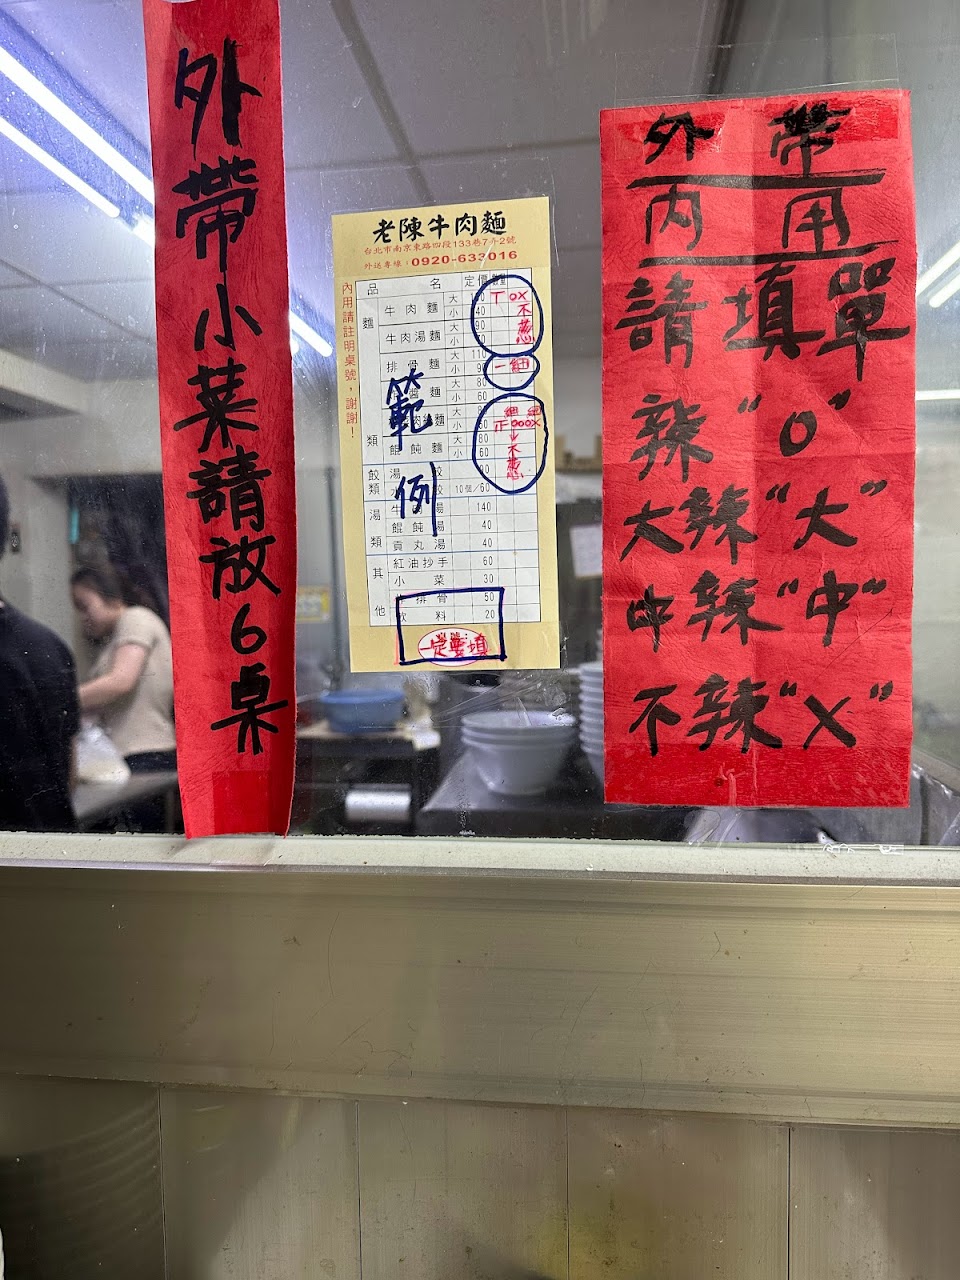 外帶小菜請放6桌
老陳牛肉麵
台北市南京東路四段133巷7弄2號
外送專線：0920-633016
內用請註明桌號，謝謝！
品 名 定價
麵類
牛肉麵 大
小 40
牛肉湯麵 大 90
小
排骨麵 大 110
小 90
醬麵 大 80
小 60
大
小 60
餛飩麵 大 80
小 60
餃類
湯餃
10個/60
湯類
牛肉湯 140
餛飩湯 40
貢丸湯 40
其他
紅油抄手 60
小菜 30
排骨 50
飲料 20
範例
T OX
不蔥
一細
正000X
不蔥
一定要填
外帶
內用
請填單
辣“O”
大辣“大”
中辣“中”
不辣“X”